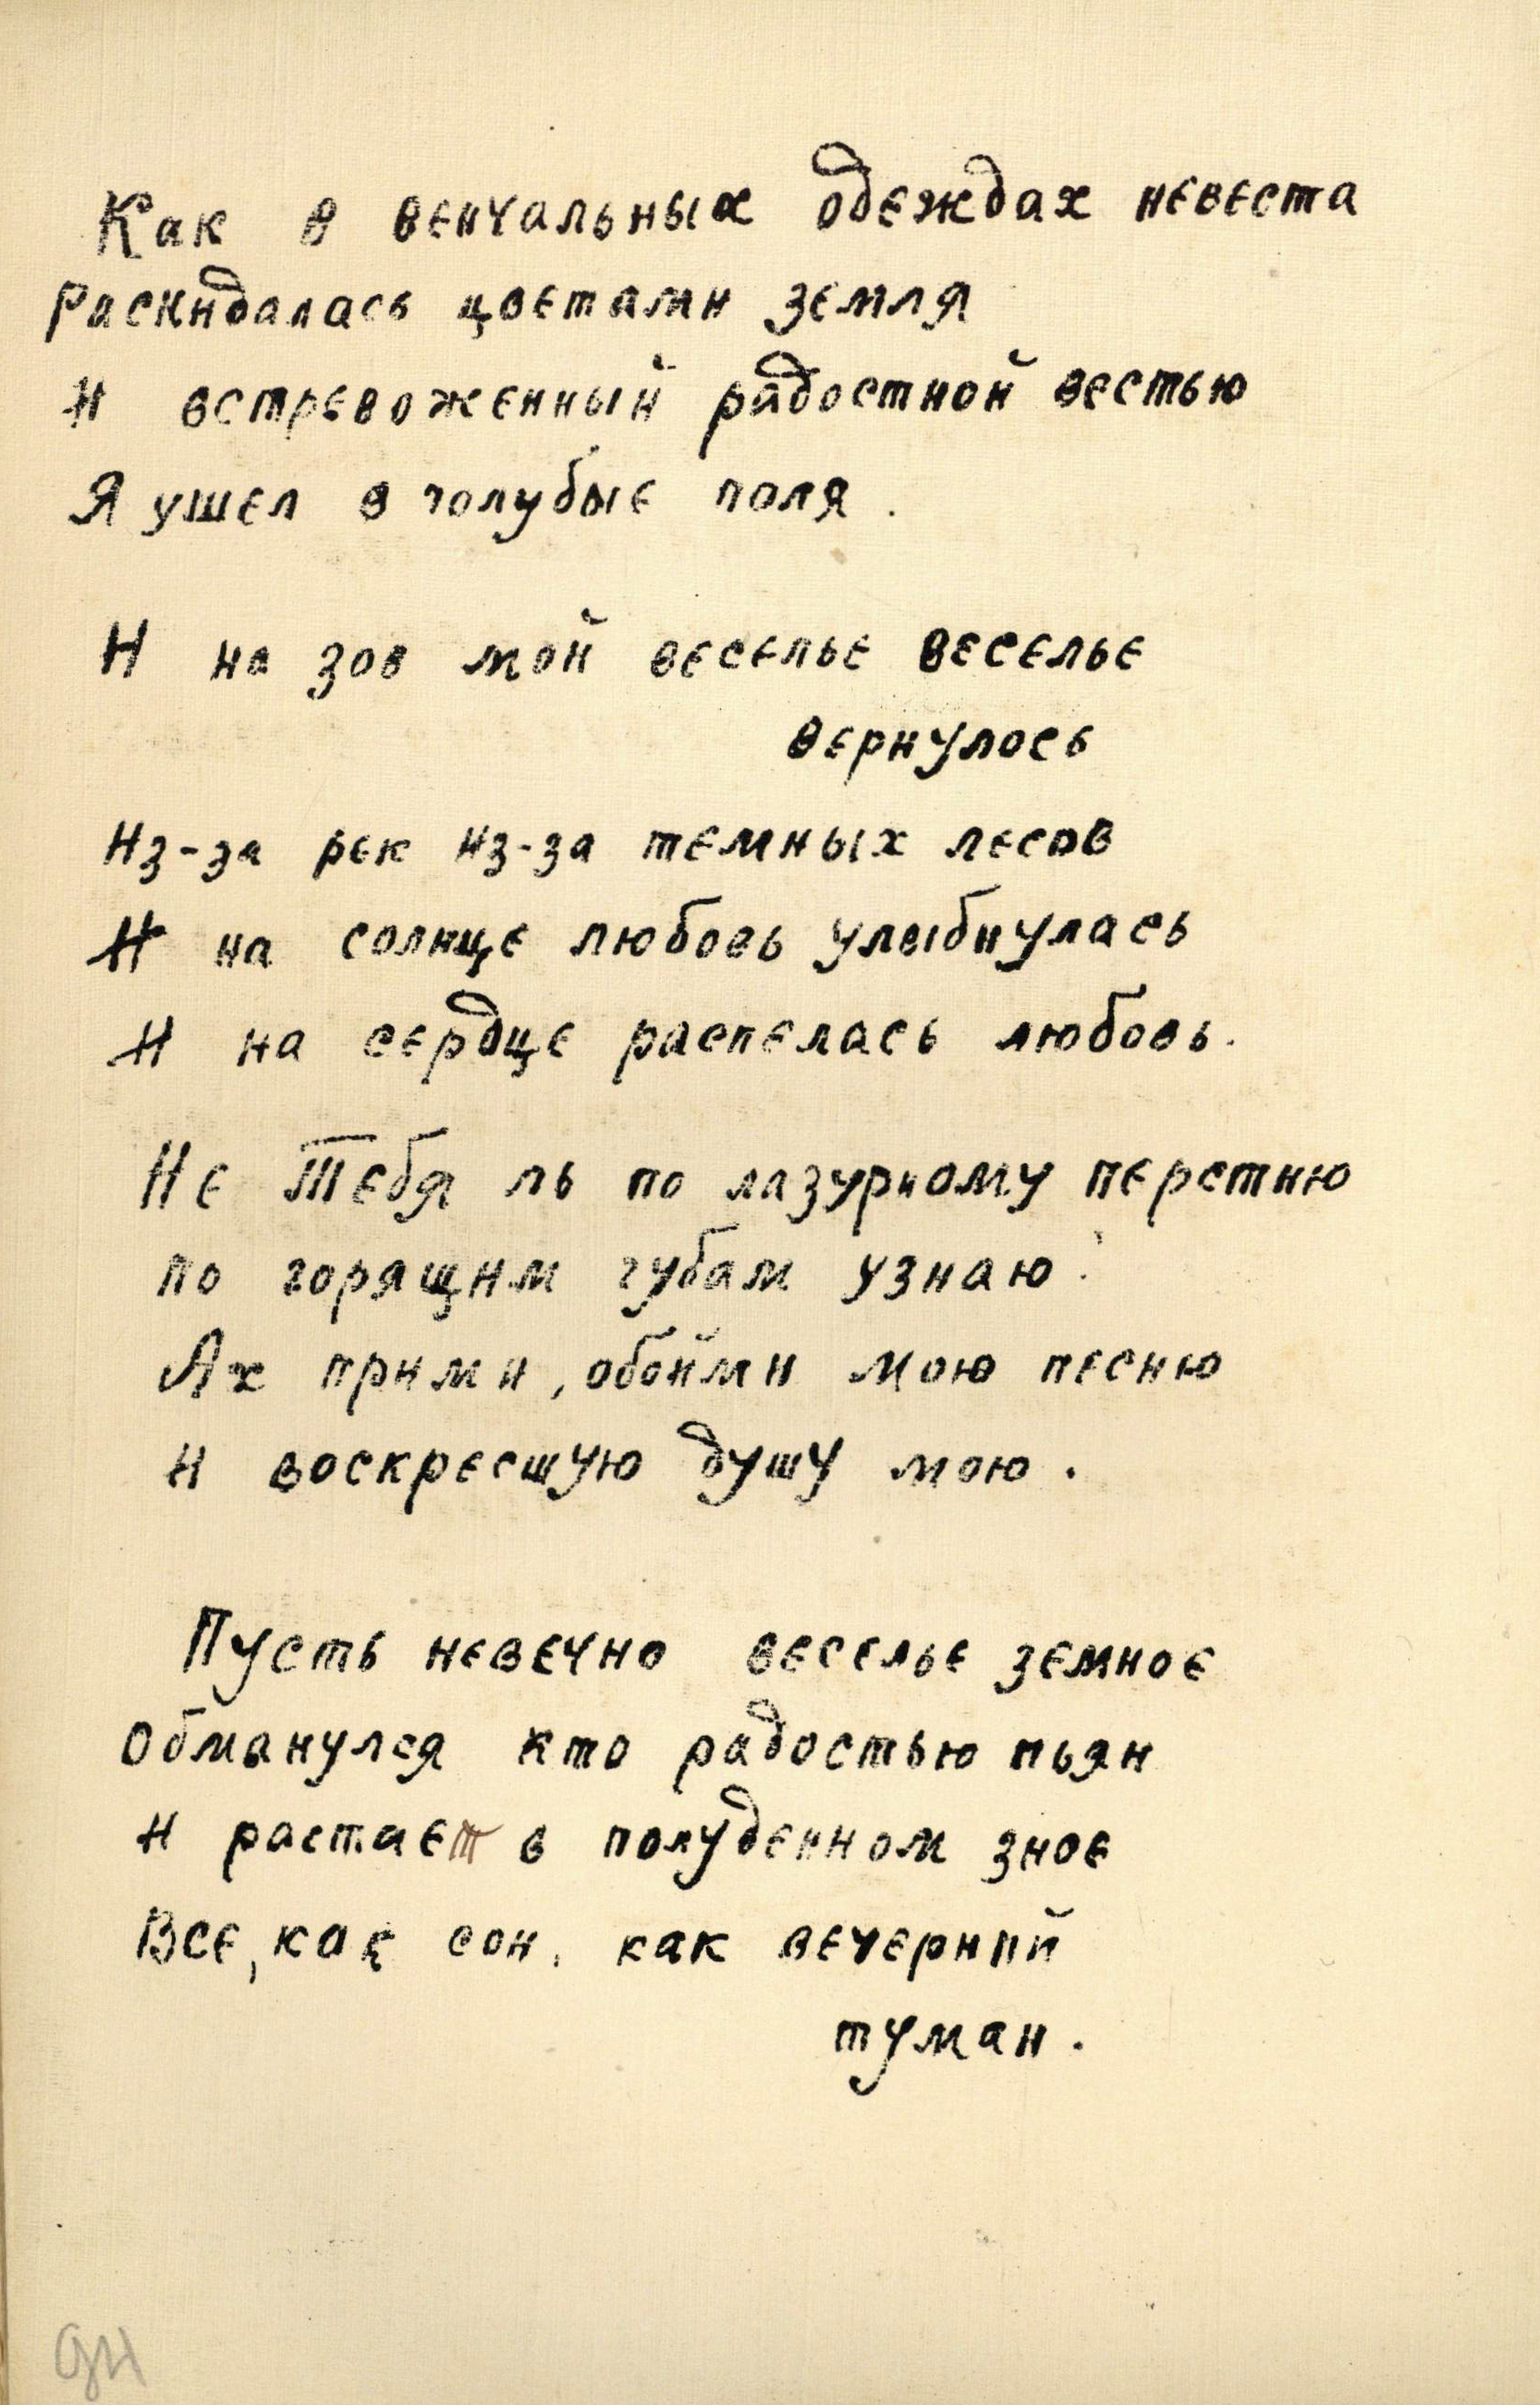 Как в венчальных одеждах невеста
Раскидалась цветами земля
И встревоженный радостной вестью
Я ушел в голубые поля.
И на зов мой веселье веселье
вернулось
Из-за рек из-за темных лесов
И на солнце любовь улыбнулась
И на сердце распелась любовь.
Не Тебя ль по лазурному перстню
по горящим губам узнаю.
Ах прими, обойми мою песню
И воскресшую душу мою.
Пусть невечно веселье земное
Обманулся кто радостью пьян
И растает в полуденном зное
Все, как сон, как вечерний
туман.